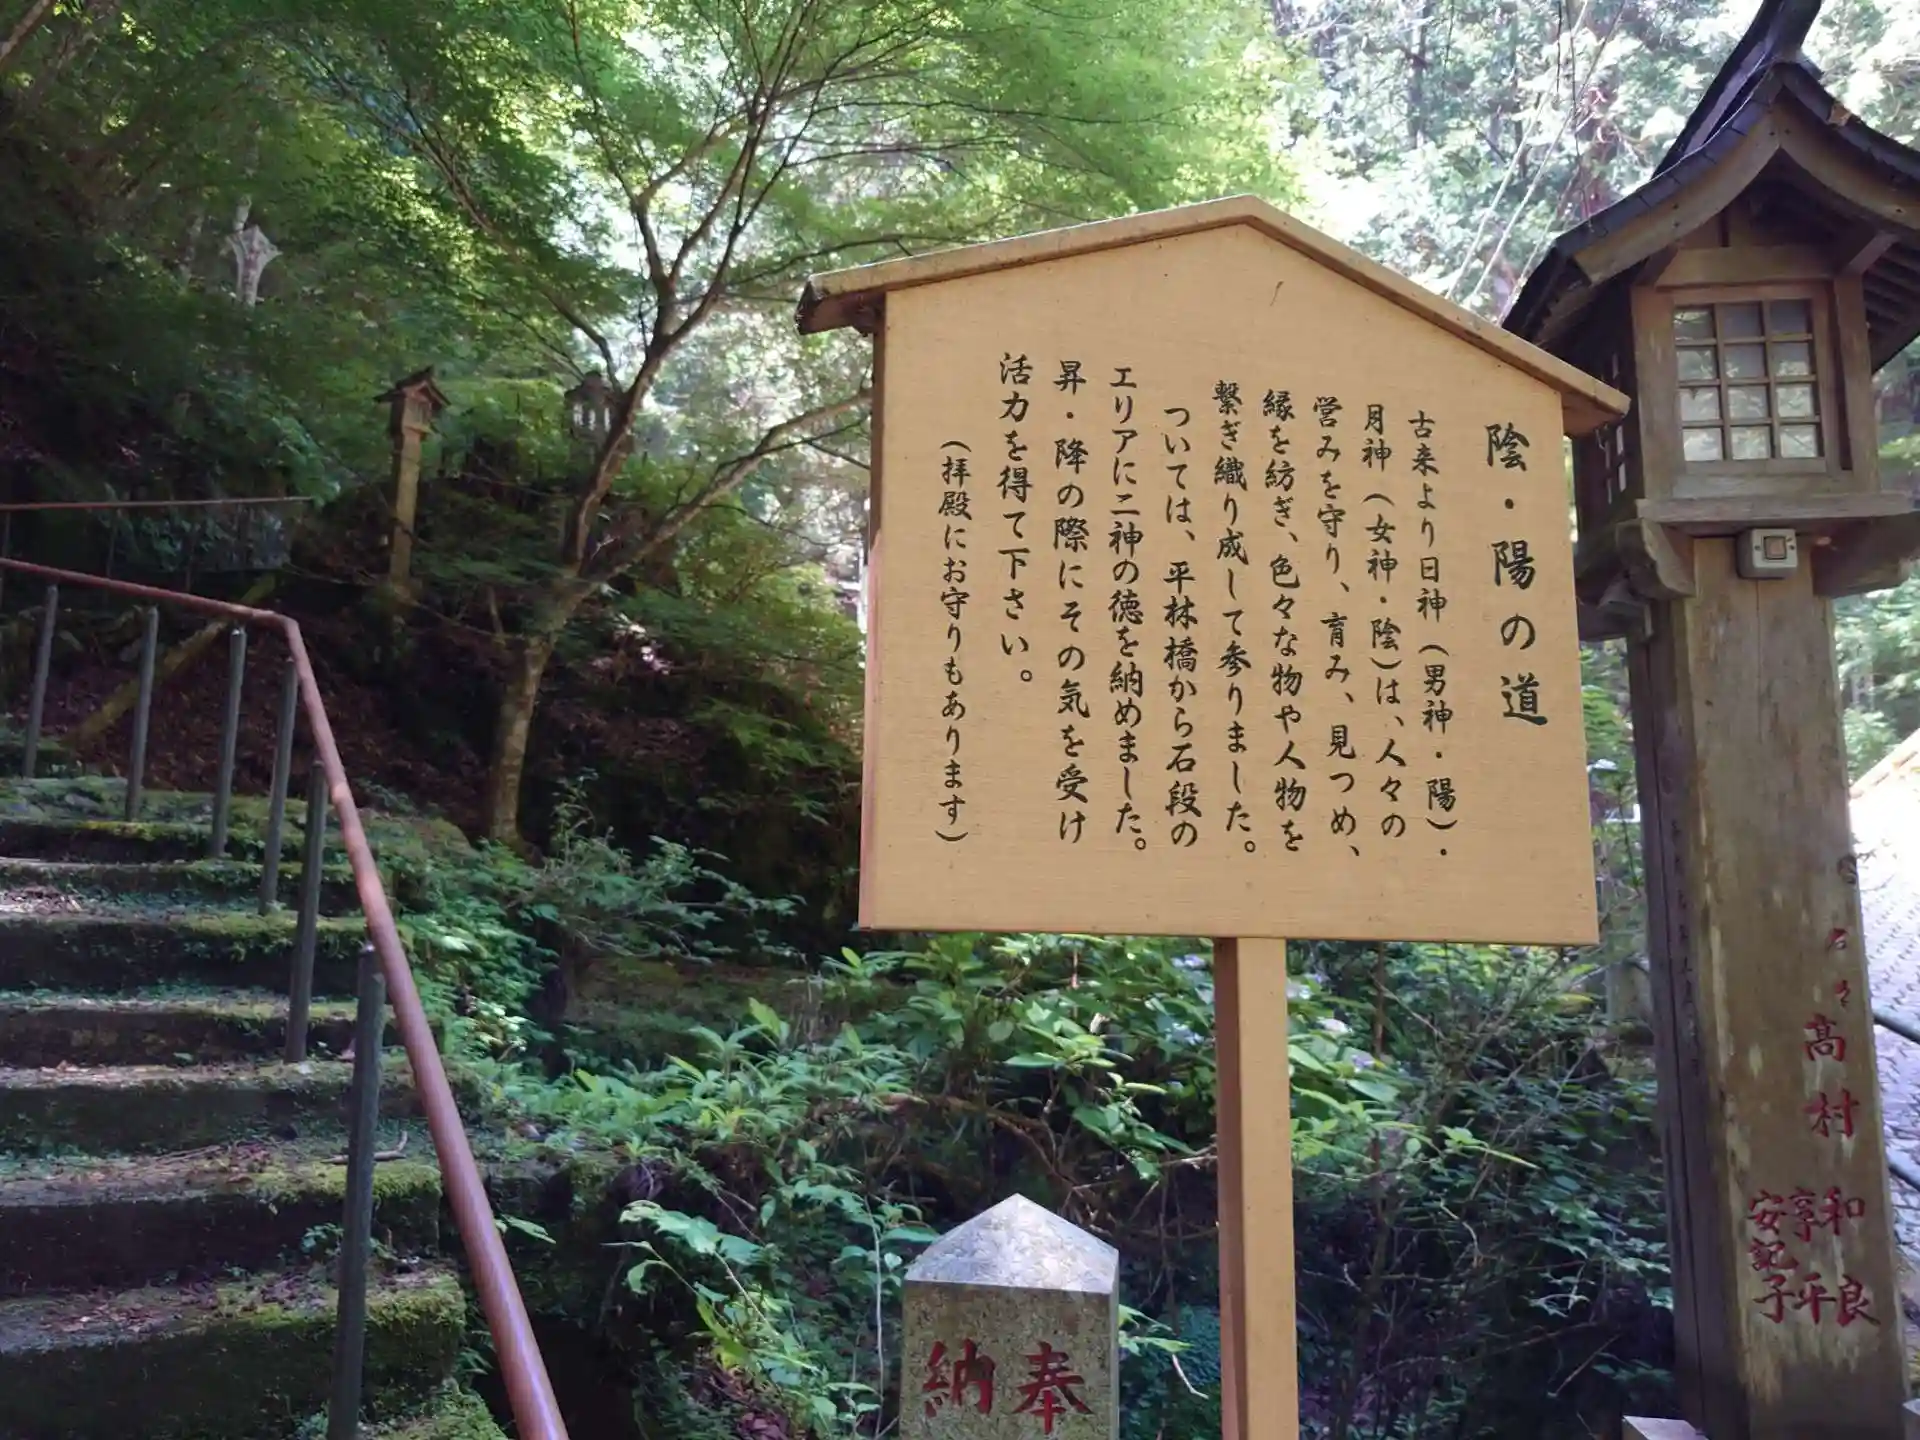 陰・陽の道
古来より日神（男神・陽）・
月神（女神・陰）は、人々の
営みを守り、育み、見つめ、
縁を紡ぎ、色々な物や人物を
繋ぎ織り成して参りました。
ついては、平林橋から石段の
エリアに二神の徳を納めました。
昇・降の際にその気を受け
活力を得て下さい。
（拝殿にお守りもあります）
奉納
高村
和良
亨平
安記子